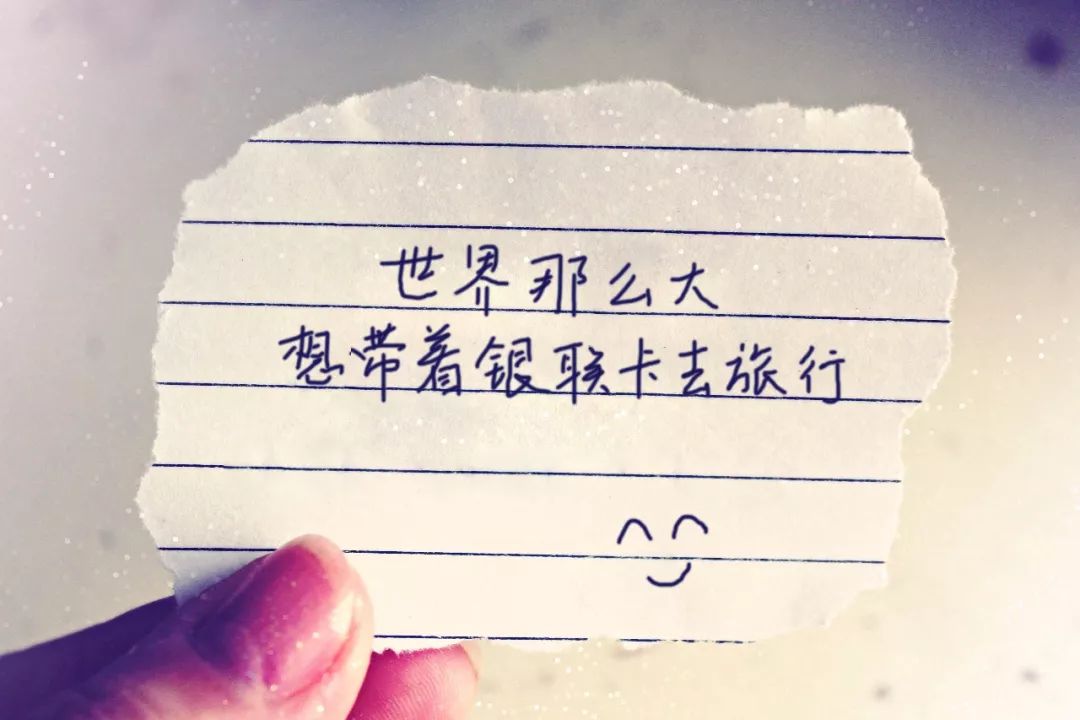 世界那么大
想带着银联卡去旅行